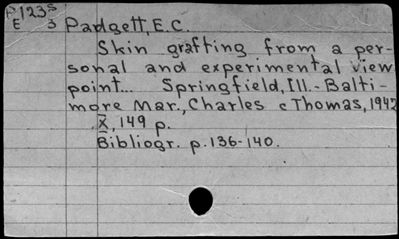 P123S
E 3
Padgett, E.C.
Skin grafting from a per-
sonal and experimental view
point... Springfield, Ill.- Balti-
more Mar., Charles c Thomas, 1942
X, 149 p.
Bibliogr. p. 136-140.